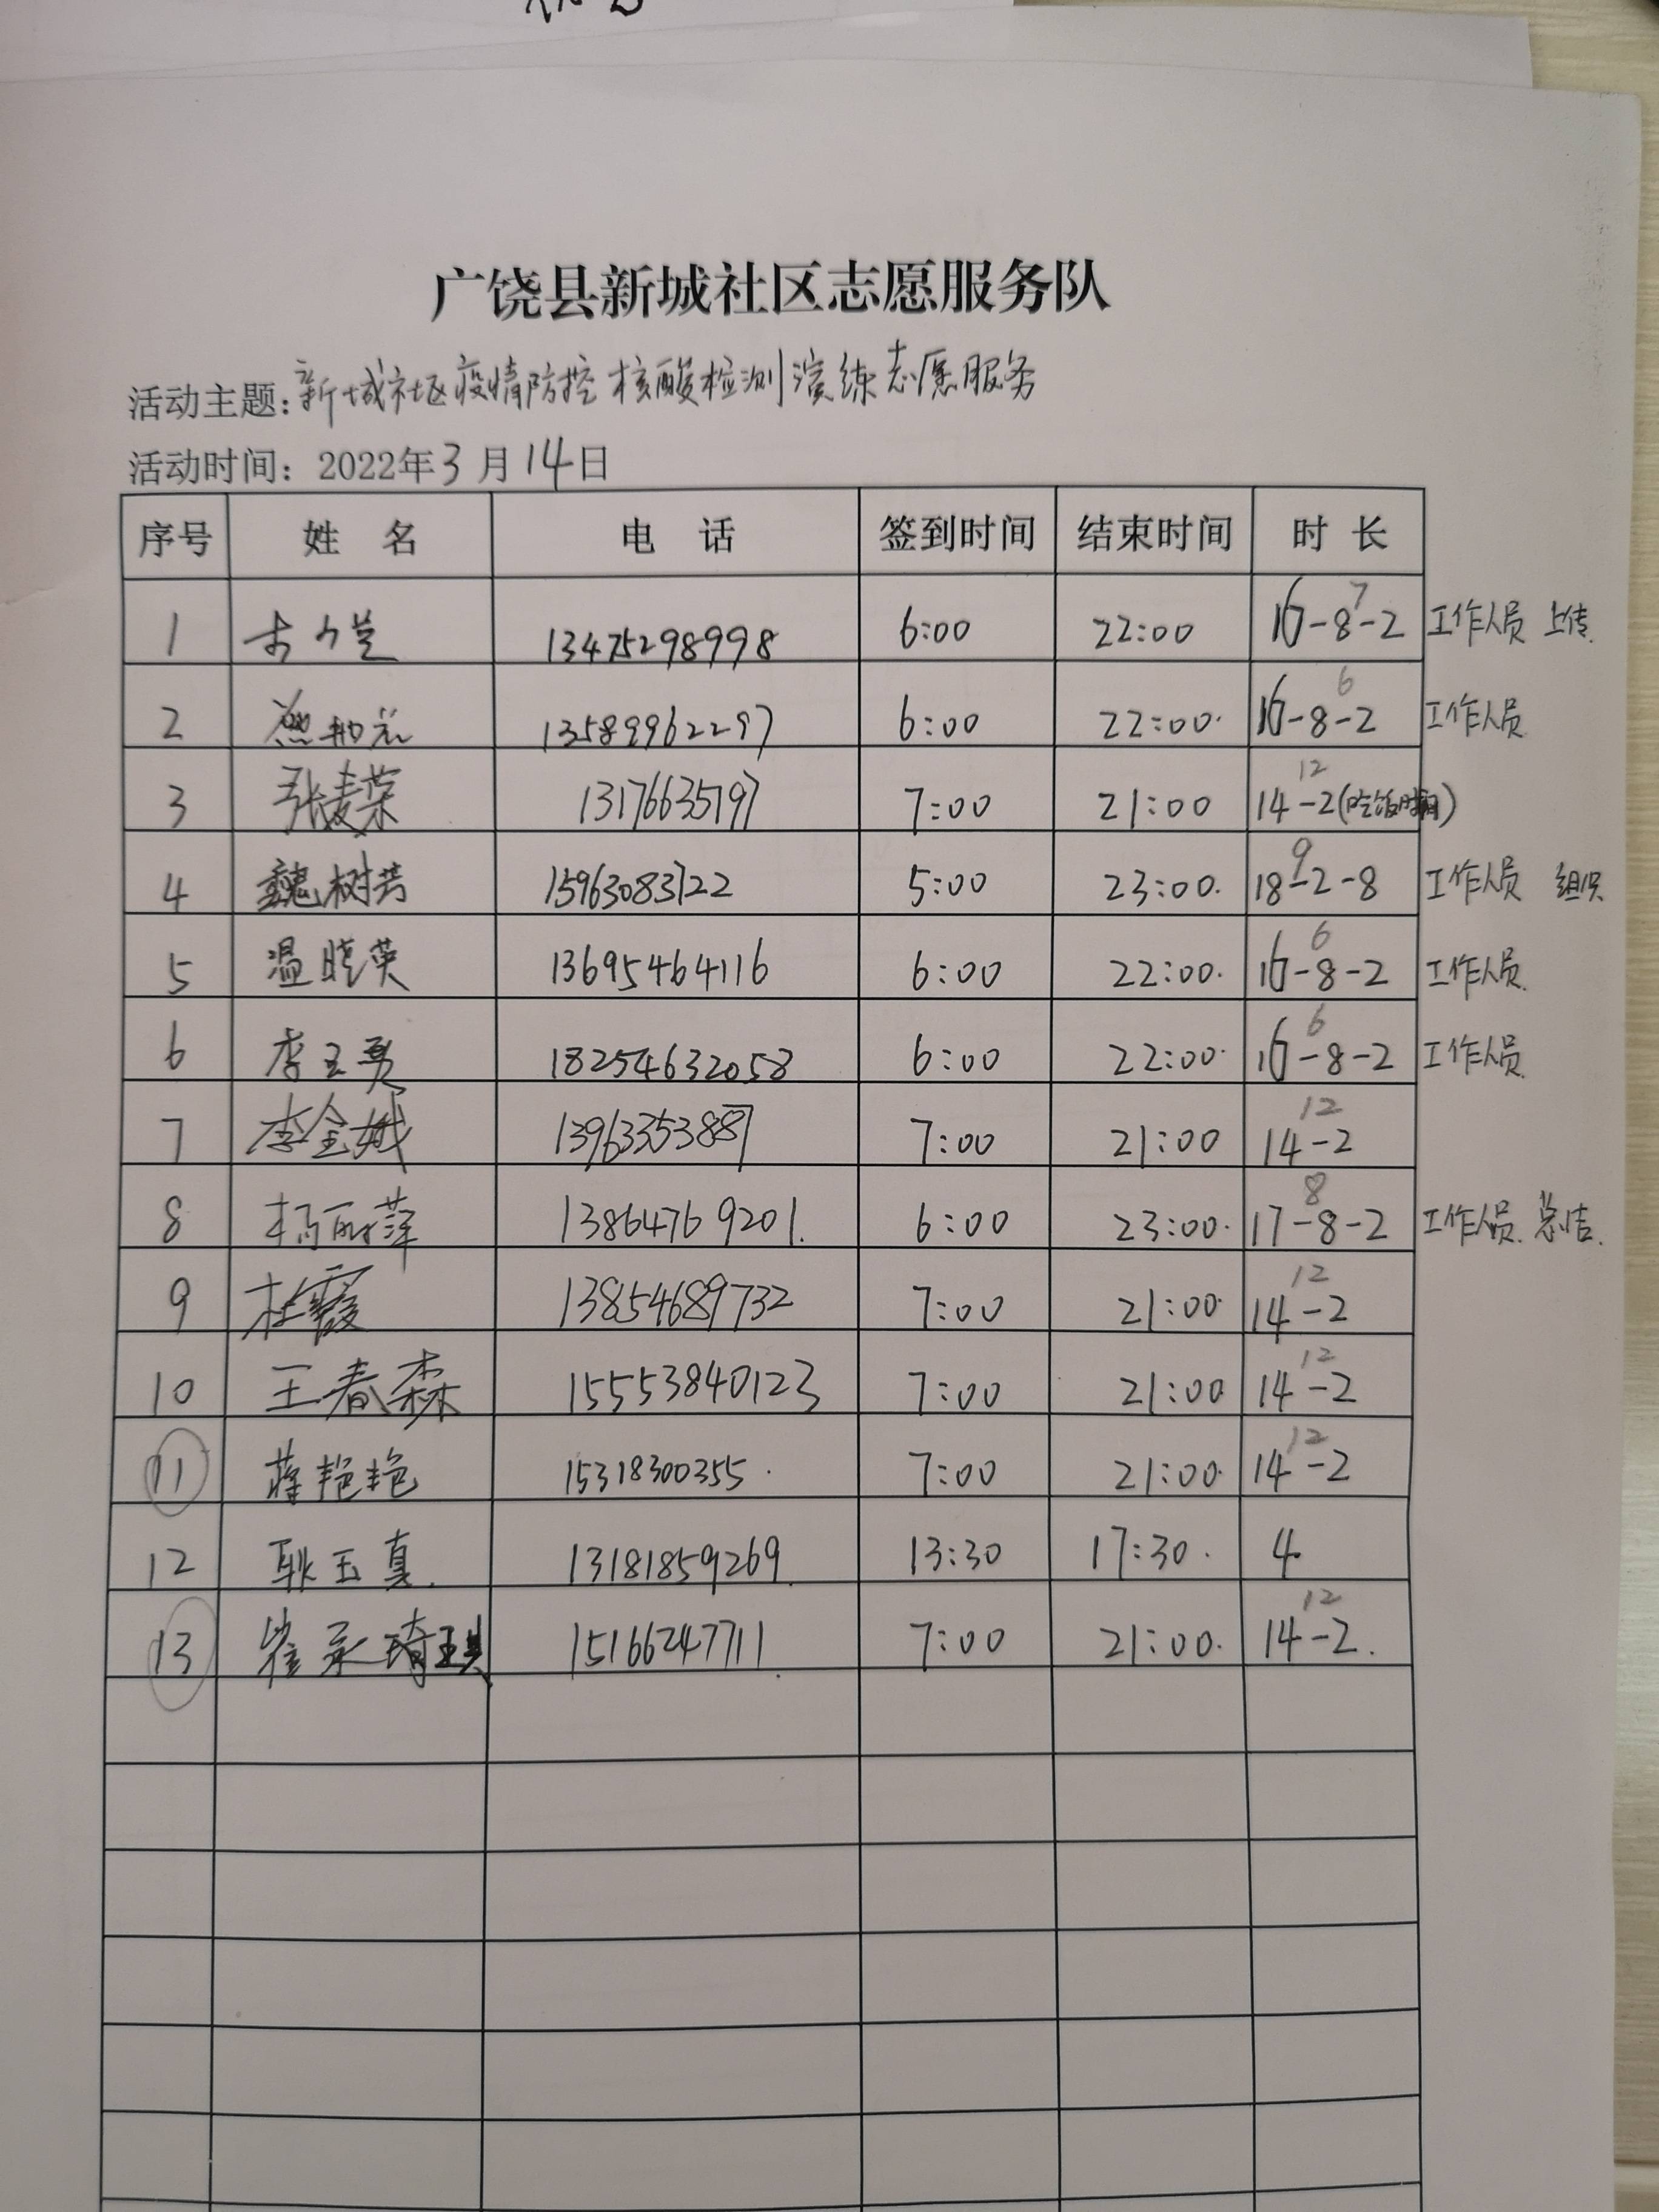 广饶县新城社区志愿服务队
活动主题：新城社区疫情防控核酸检测演练志愿服务
活动时间：2022年3月14日
序号 姓名 电话 签到时间 结束时间 时长
1 13475298998 6:00 22:00 16-8-2 7 工作人员 上传
2 13589962297 6:00 22:00 16-8-2 6 工作人员
3 张麦荣 13176635797 7:00 21:00 14-2(吃饭时间) 12
4 魏树芳 15963083722 5:00 23:00 18-2-8 9 工作人员 组织
5 温晓英 13695464116 6:00 22:00 16-8-2 6 工作人员
6 李玉勇 18254632058 6:00 22:00 16-8-2 6 工作人员
7 李金娥 13963353887 7:00 21:00 14-2 12
8 杨丽萍 13864769201 6:00 23:00 17-8-2 8 工作人员 总结
9 杜霞 13854689732 7:00 21:00 14-2 12
10 王春森 15553840123 7:00 21:00 14-2 12
11 蒋艳艳 15318300355 7:00 21:00 14-2 12
12 耿玉真 13181859269 13:30 17:30 4
13 崔承琦琪 15166247711 7:00 21:00 14-2 12